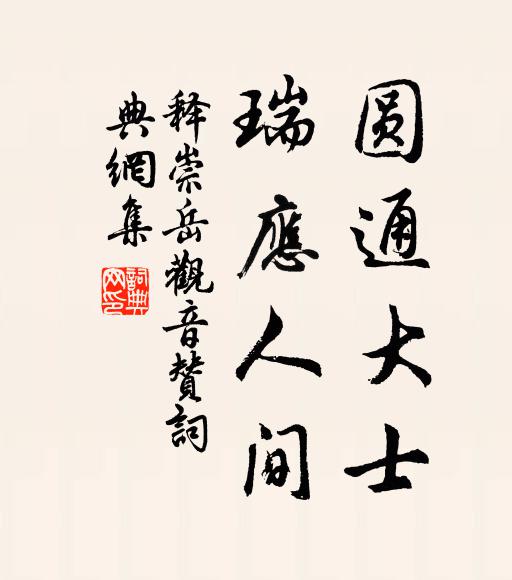 圆通大士
瑞應人间
释崇岳觀音賛詞
典網集
詞典
网印